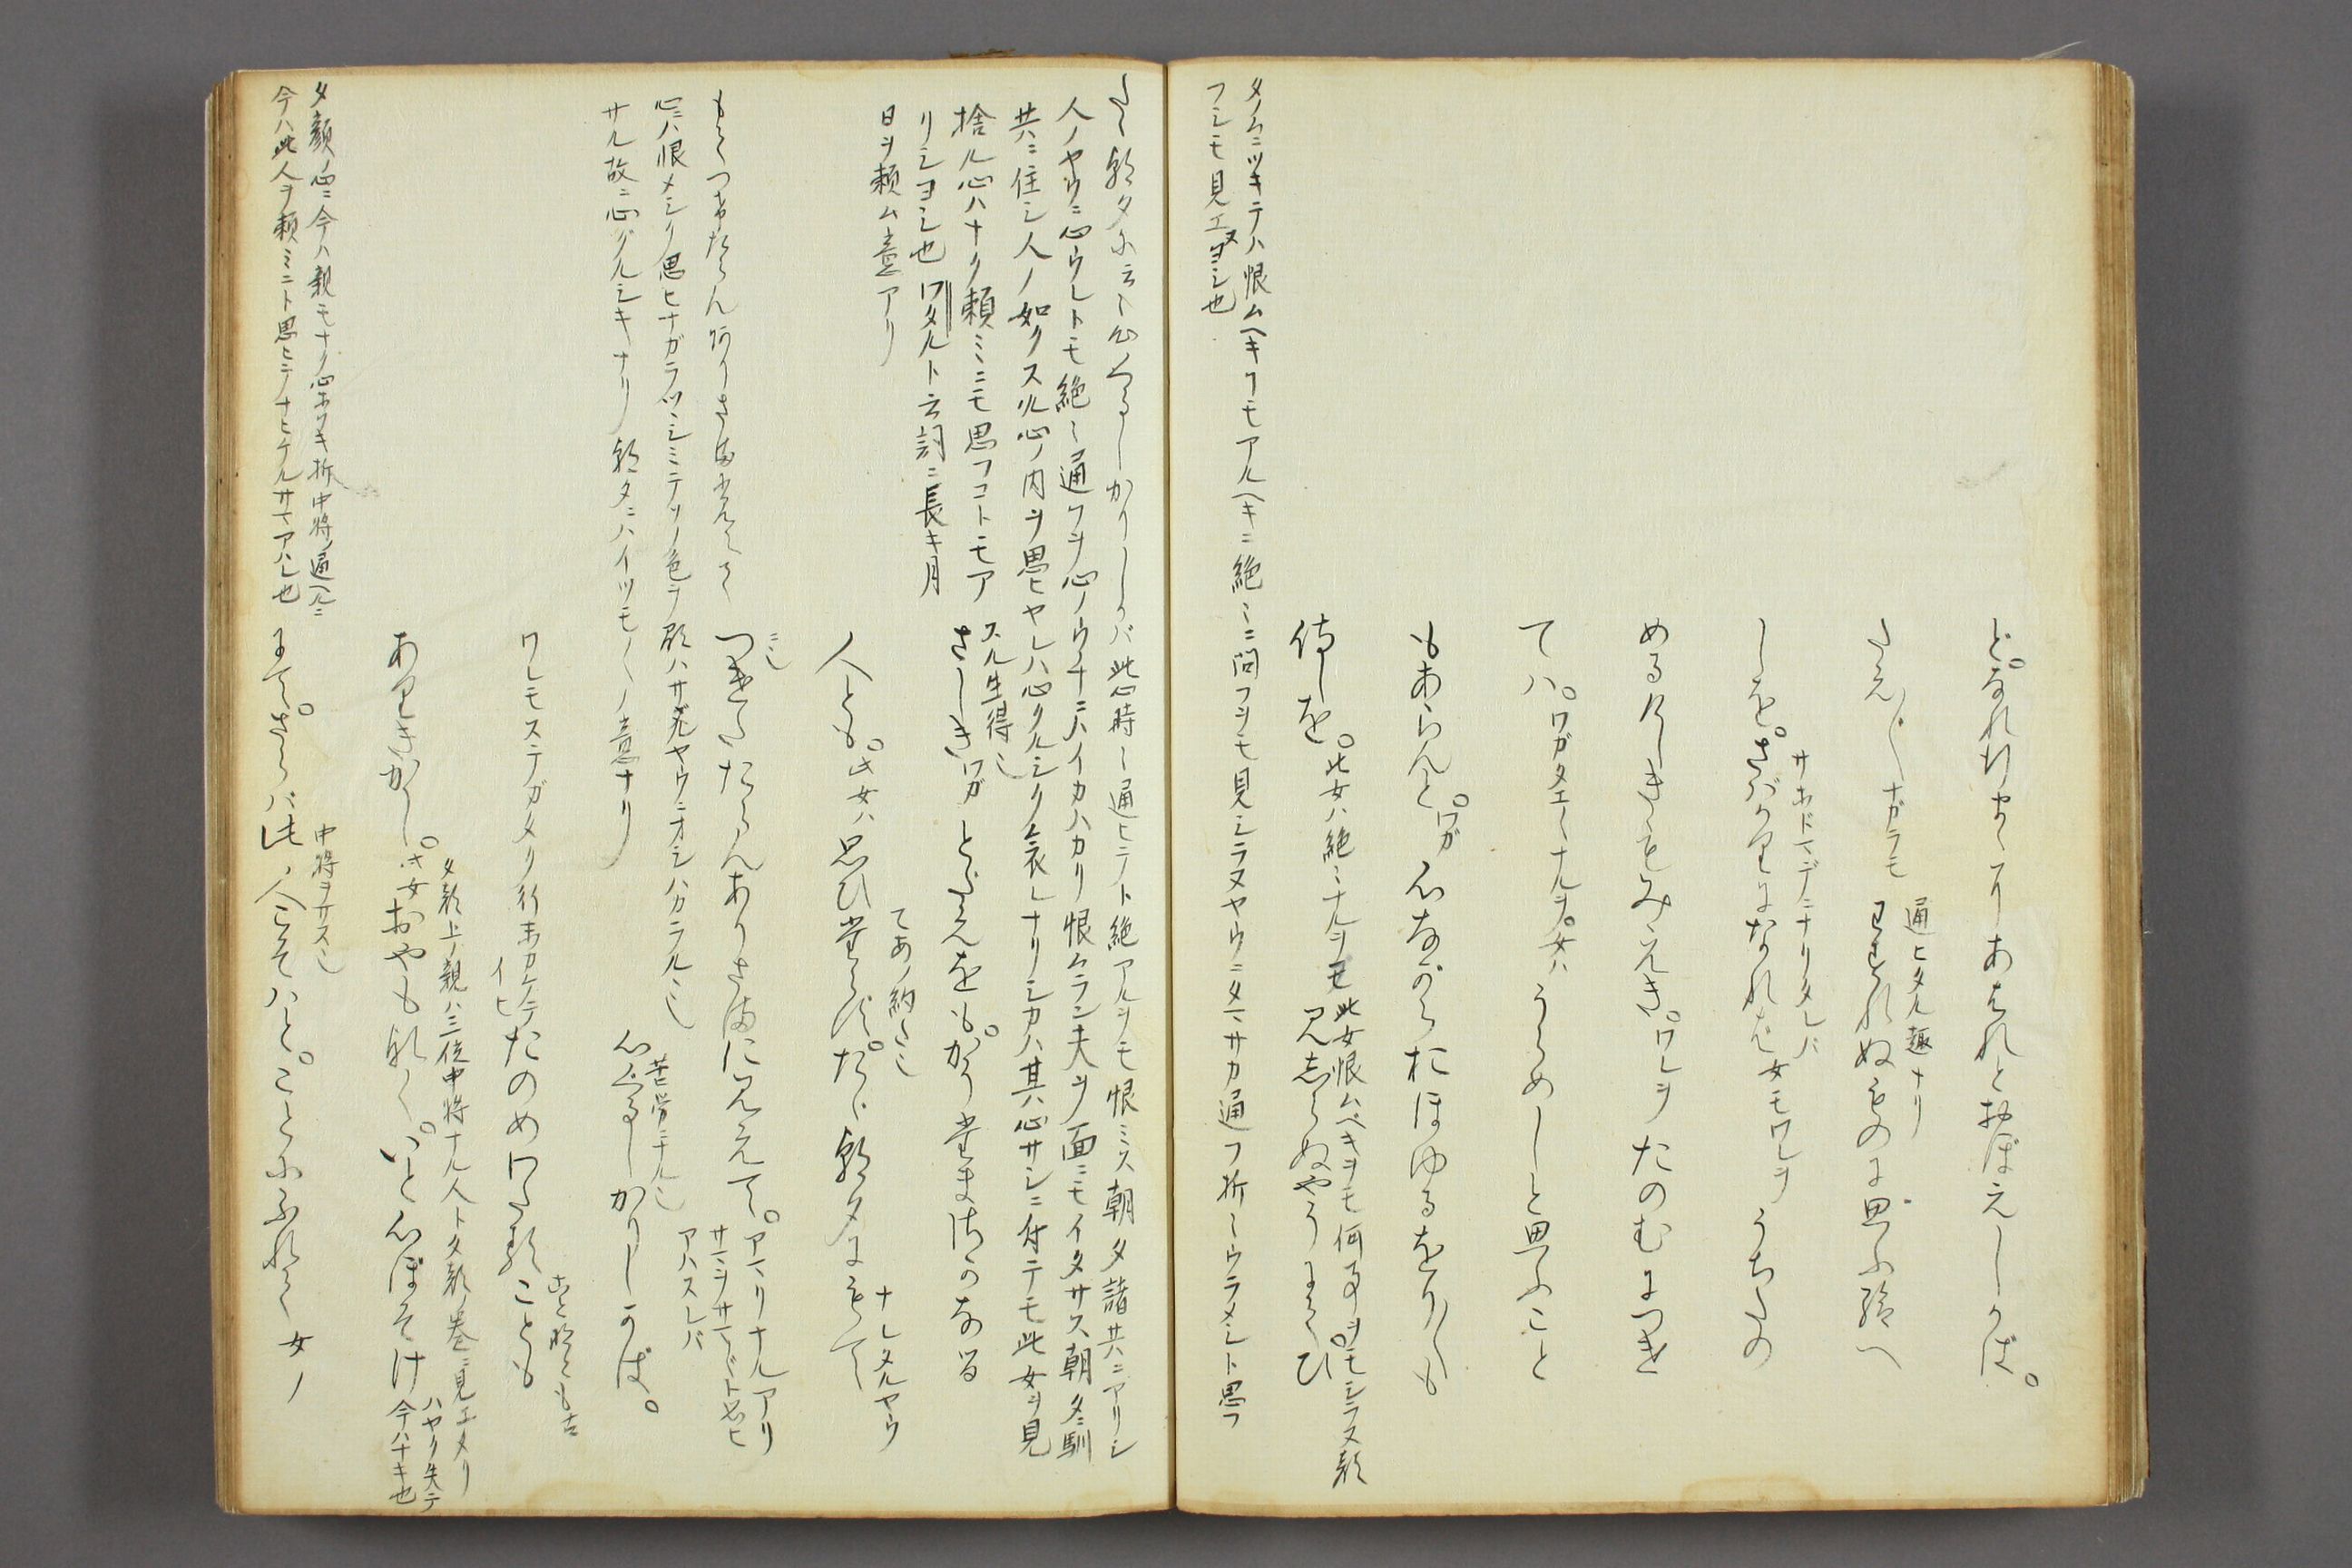 ど。なれ行まゝにあはれとおぼえしかば。
たえ／″＼ナガラモ わすれぬものに思ふ給へ
通ヒタル趣ナリ
しを。さバかりになれバ女モワレヲ うちたの
サホドマデニナリタレバ
めるけしきもみえき。ワレヲ たのむにつき
てハ。ワガタエ〳〵ナルヲ。女ハ うらめしと思ふこと
もあらんと。ワガ 心ながらおほゆるをり〳〵も
侍しを。此女ハ絶ミナルヲモ 見しらぬやうにて。ひ
此女恨ムベキヲモ何事ヲモシラヌ顔
タノムニツキテハ恨ムヘキヿモアルヘキニ絶ミニ問フヲモ見シラヌヤウニタマサカ通フ折〳〵ウラメシト思フ
フシモ見エヌヨシ也
たゞ朝夕に云〻心くるしかりしかバ此時〻通ヒテト絶アルヲモ恨ミス朝夕諸共ニアリシ
人ノヤウニ心ウレトモ絶〻通フヲ心ノウチニハイカハカリ恨ムラン夫ヲ面ニモイタサス朝夕ニ馴
共ニ住シ人ノ如クスル心ノ内ヲ思ヒヤレハ心クルシク哀レナリシカハ其心サシニ付テモ此女ヲ見
捨ル心ハナク頼ミニモ思フコトモア
リシヨシ也 ワタルト云詞ニ長キ月
日ヲ頼ム意アリ
スル生得〻
さしきワガ とだえをも。かうたまさかなる
人とも。此女ハ 思ひたらず。たゞ朝夕にもて
ナレタルヤウ
もてつけたらんありさま見えて
つけたらんありさまに見えて。アマリナルアリ
サマヲサマデト思ヒ
アハスレバ
心ニハ恨メシク思ヒナガラツヽシミテソノ色ヲ顕ハサヌヤウニオシハカラルヽ也
サル故ニ心グルシキナリ 朝夕ニハイツモ〳〵ノ意ナリ
心ぐるしかりしかば。
苦労ニナル也
ワレモステガタク行末カケテ たのめわたることも
イヒ
ありきかし。此女 おやもなく。いと心ぼそけ 今ハナキ也
夕顔上ノ親ハ三位中将ナル人ト夕顔ノ巻ニ見エタリ
ハヤク失テ
夕顔ノ心ニ今ハ親モナク心ホソキ折中将ノ通ヘルニ
今ハ此人ヲ頼ミニト思ヒテナヒケルサマアハレ也
にて。さらバ此ノ人こそハと。ことにふれて 女ノ
中将ヲサス也